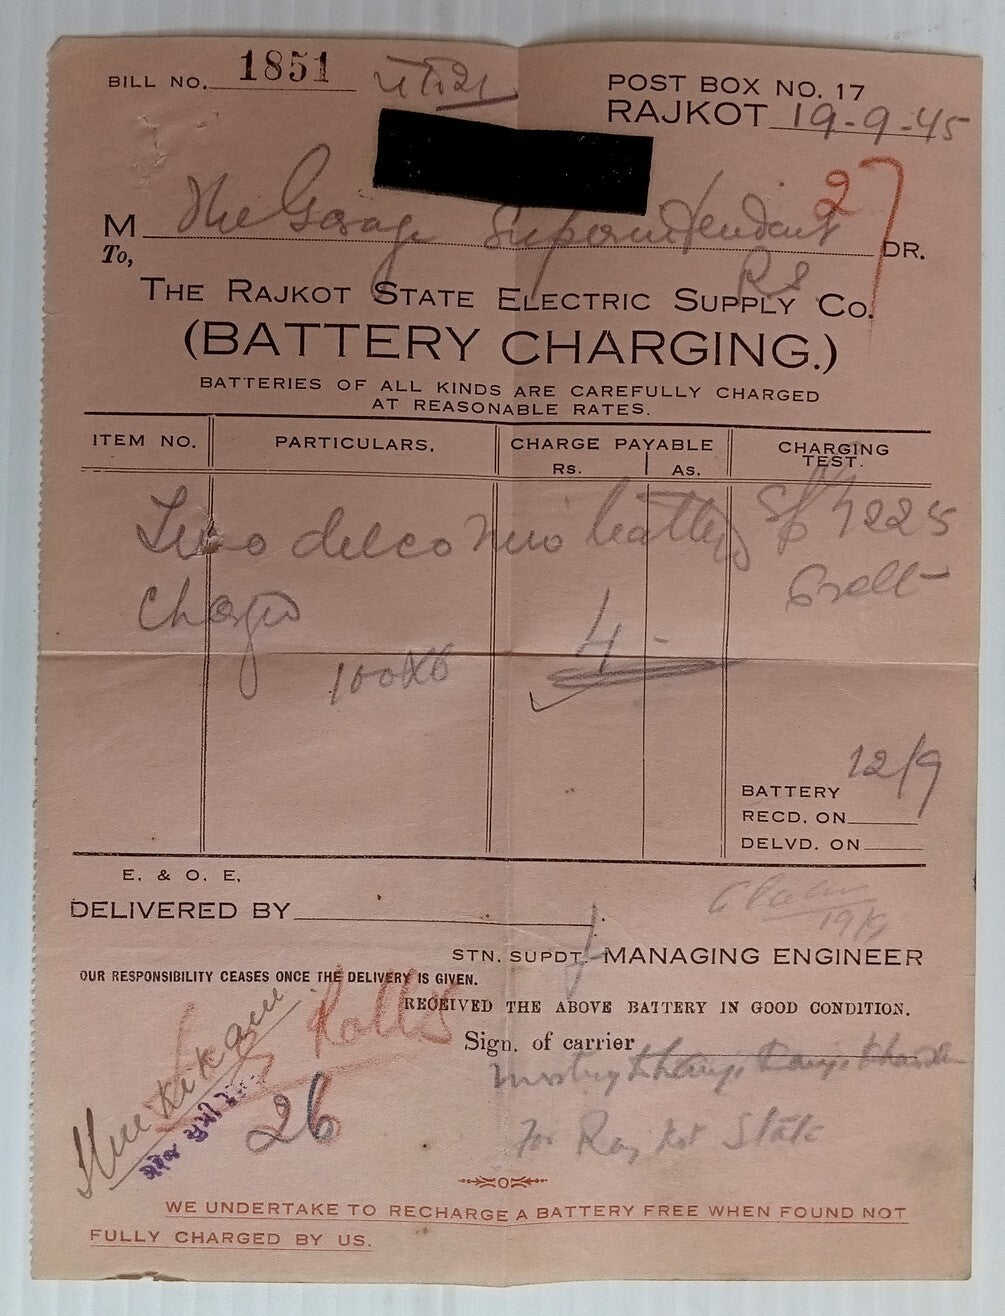 BILL NO. 1851
POST BOX NO. 17
RAJKOT 19-9-45
27
M The Garage Superintendent DR.
To,
Rs
THE RAJKOT STATE ELECTRIC SUPPLY CO.
(BATTERY CHARGING.)
BATTERIES OF ALL KINDS ARE CAREFULLY CHARGED
AT REASONABLE RATES.
ITEM NO. PARTICULARS, CHARGE PAYABLE CHARGING TEST.
Rs. As.
Two delco battery 1225
Charge
4 -
100x6
12/9
BATTERY
RECD. ON
DELVD. ON
E. & O. E.
DELIVERED BY
19/9
STN. SUPDT. MANAGING ENGINEER
OUR RESPONSIBILITY CEASES ONCE THE DELIVERY IS GIVEN.
RECEIVED THE ABOVE BATTERY IN GOOD CONDITION.
Rolls
Sign. of carrier
26
For Rajkot State
WE UNDERTAKE TO RECHARGE A BATTERY FREE WHEN FOUND NOT
FULLY CHARGED BY US.